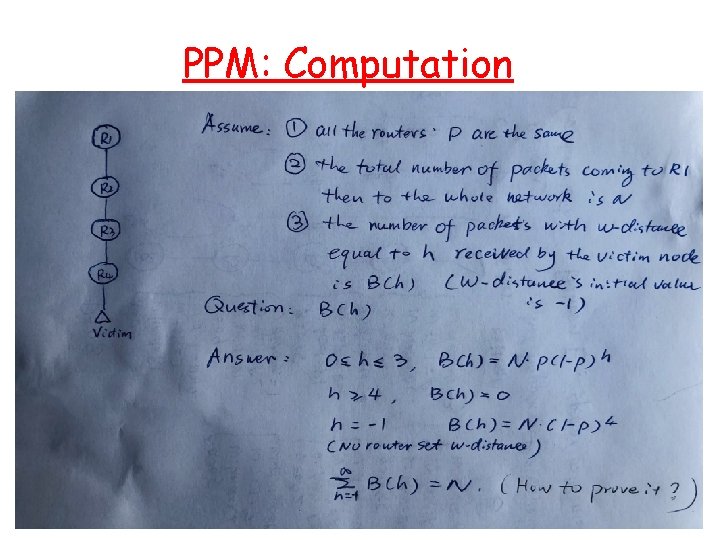 PPM: Computation
R1
R2
R3
R4
Victim
Assume: ① all the routers' P are the same
② the total number of packets coming to R1
then to the whole network is N
③ the number of packets with w-distance
equal to h received by the victim node
is B(h) (w-distance's initial value
is -1)
Question: B(h)
Answer: 0≤h≤3, B(h)=N·p(1-p)^h
h≥4, B(h)=0
h=-1 B(h)=N·(1-p)^4
(No router set w-distance)
∞
∑ B(h)=N. (How to prove it?)
h=-1